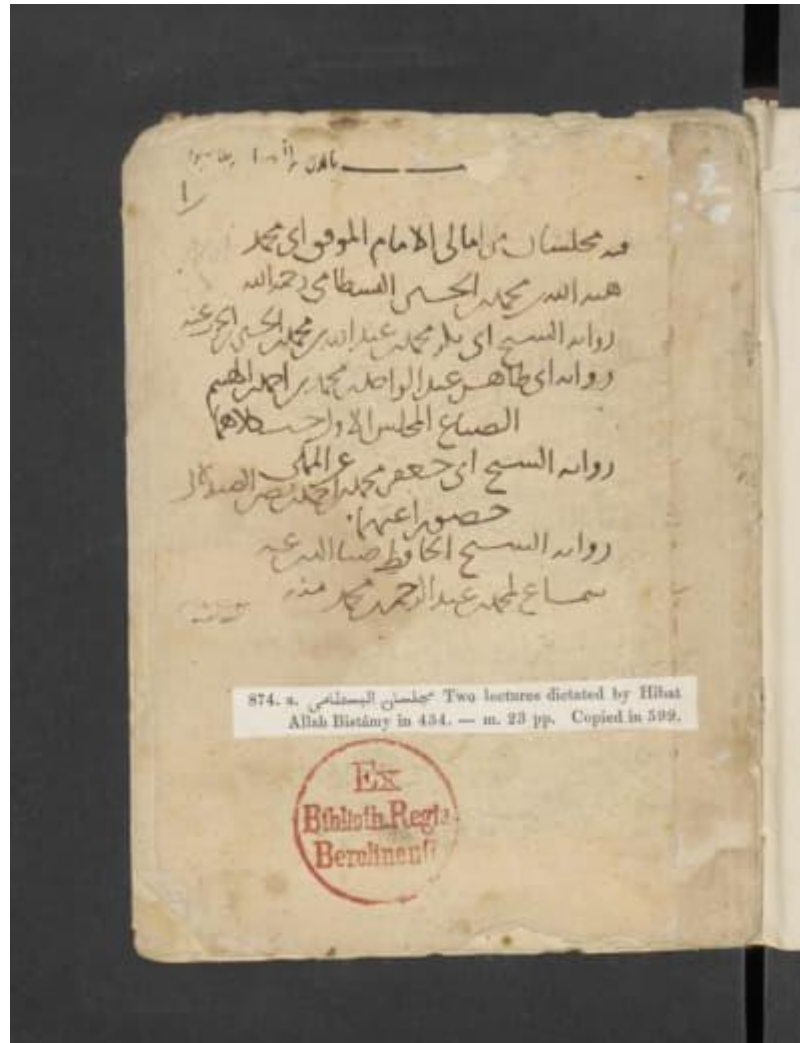 فيه مجلسان من امالي الامام الموفق ابي محمد
هبه الله بن محمد بن الحسين البسطامي رحمه الله
روايه الشيخ ابي محمد بن عبد الله بن محمد بن الحسين عنه
روايه ابي طاهر عبد الواحد بن محمد بن احمد بن الهيثم
الصباغ المجلس الاول
روايه الشيخ ابي جعفر محمد بن احمد بن نصر الصيدلاني
حضورا عنهما
روايه الشيخ الحافظ ضيا الدين عنه
سماع لمحمد بن عبد الرحمن بن محمد منه
874. a. مجلسان البسطامى Two lectures dictated by Hibat
Allah Bistámy in 434. — m. 23 pp. Copied in 599.
Ex
Biblioth. Regia
Berolinensi